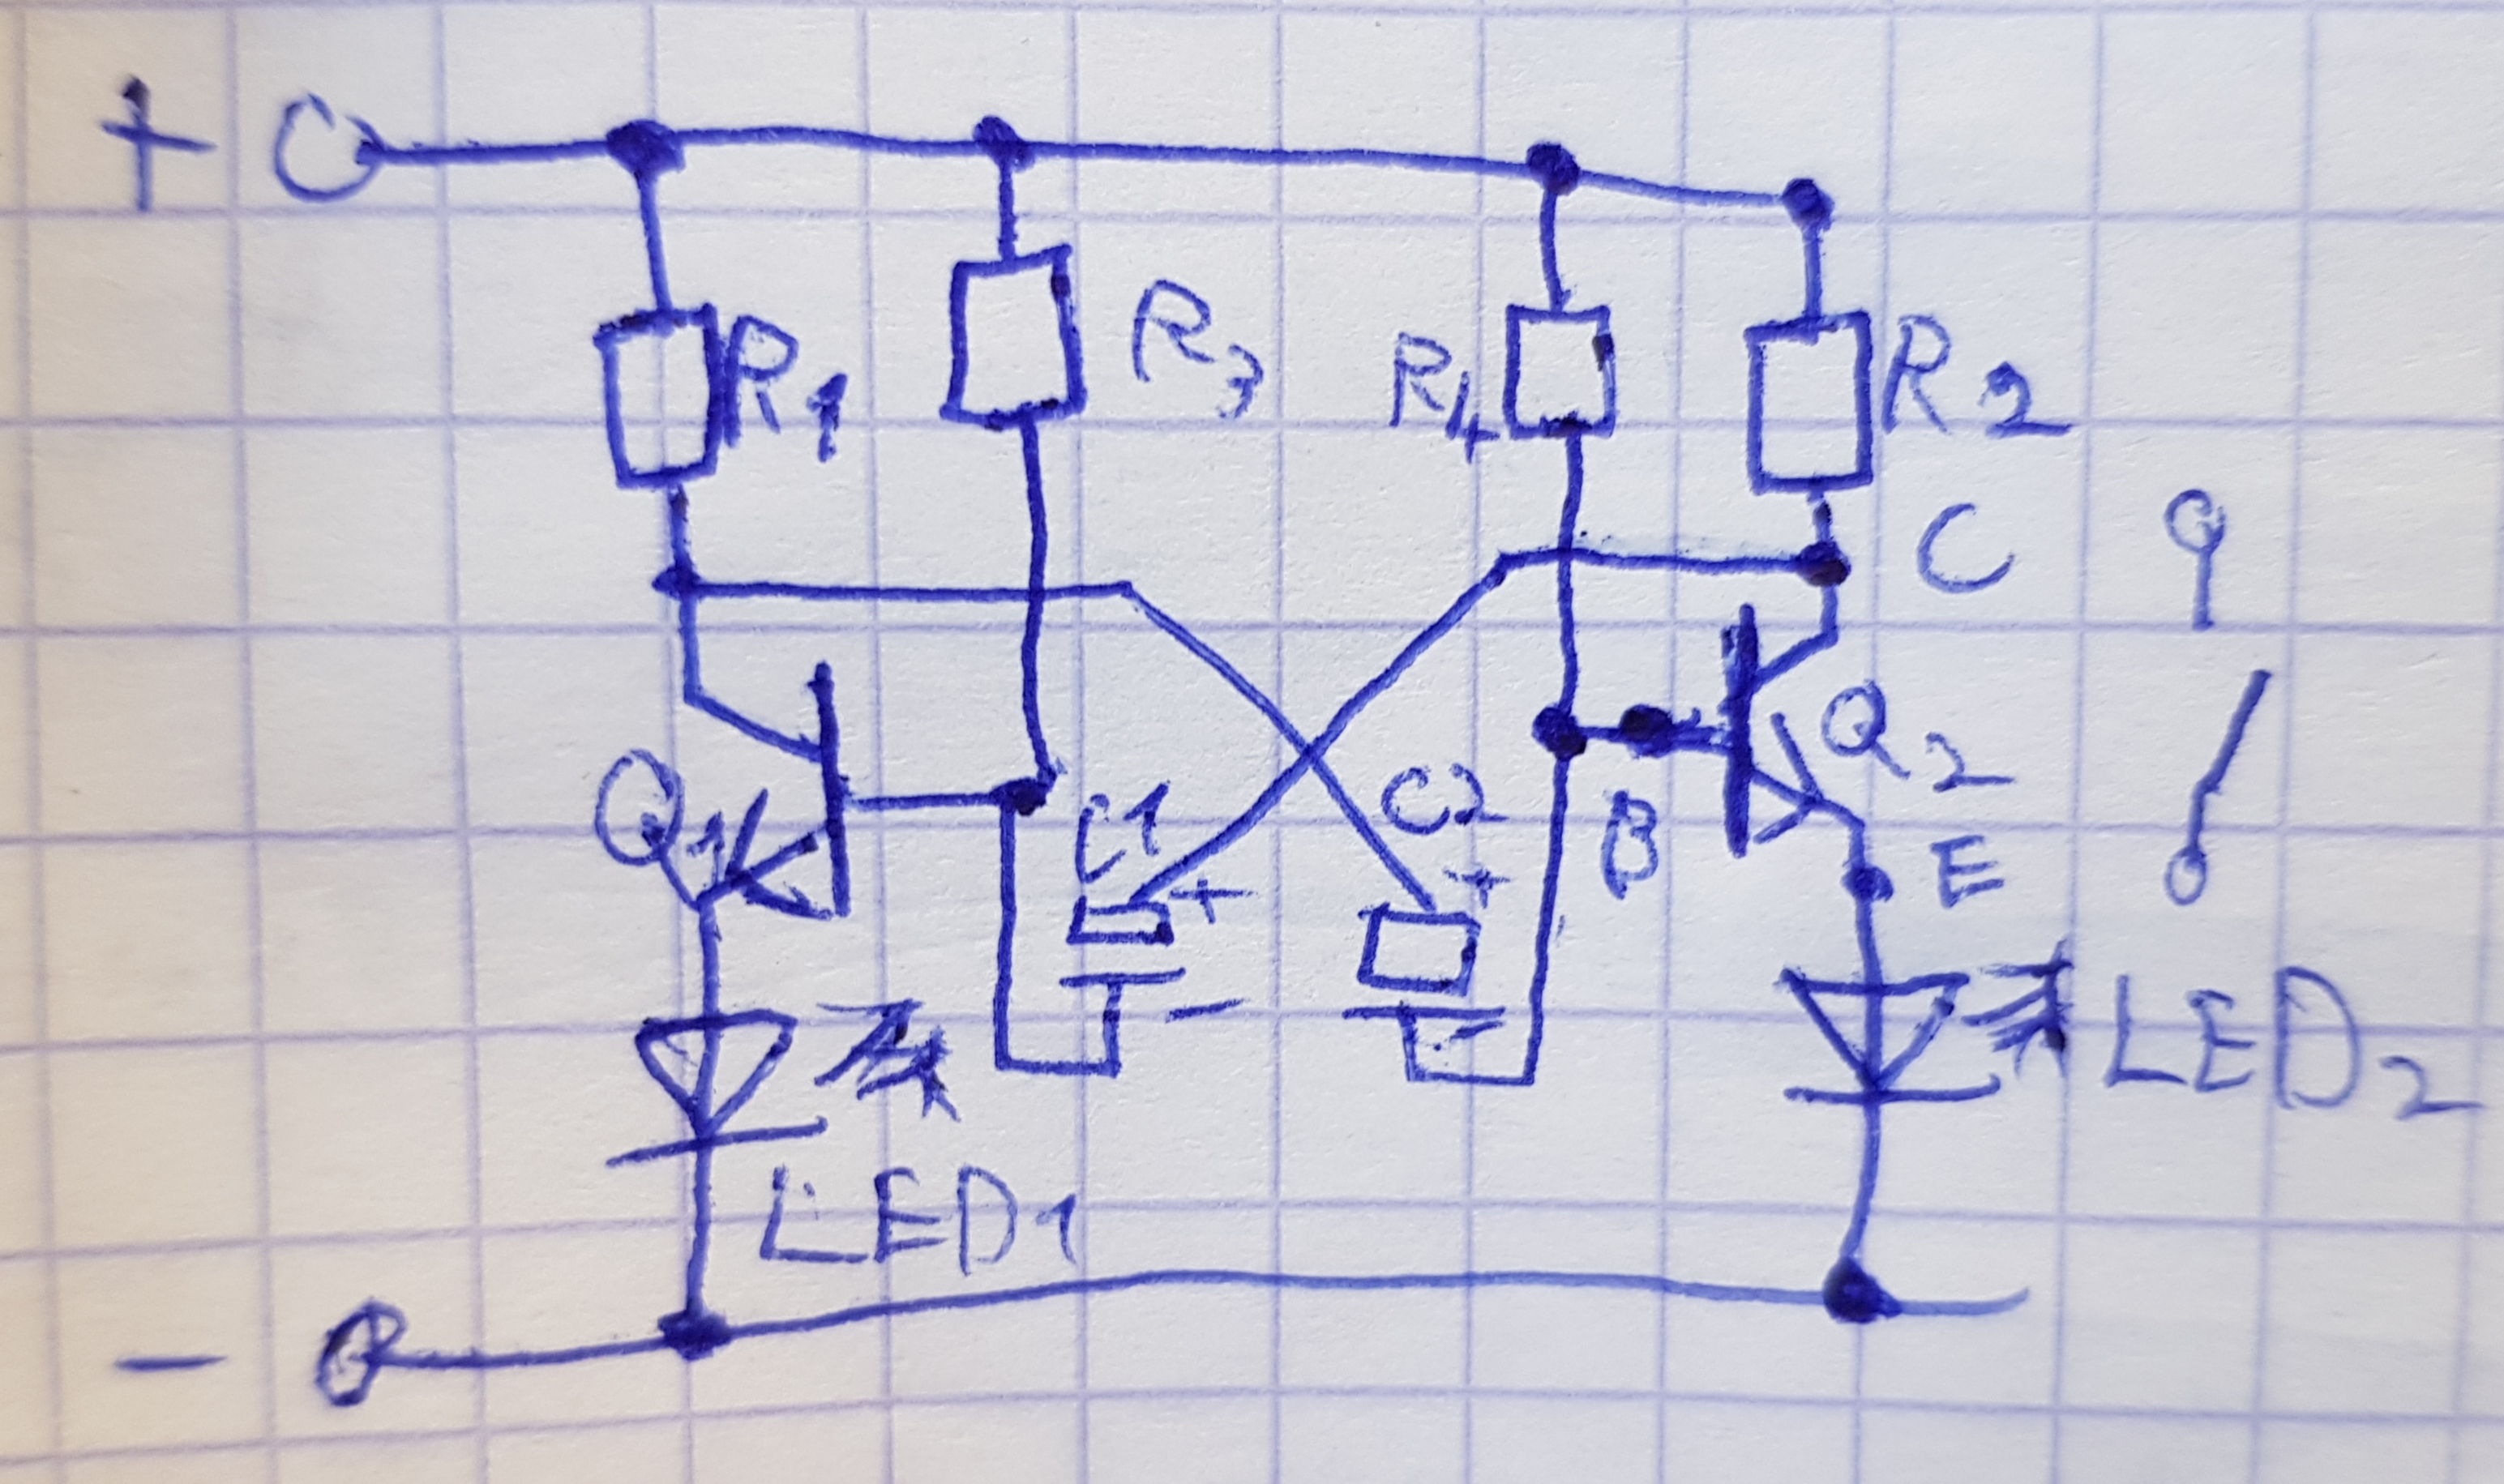 +
R1
R3
R4
R2
C
Q1
C1
+
-
C2
+
-
B
Q2
E
LED1
LED2
-